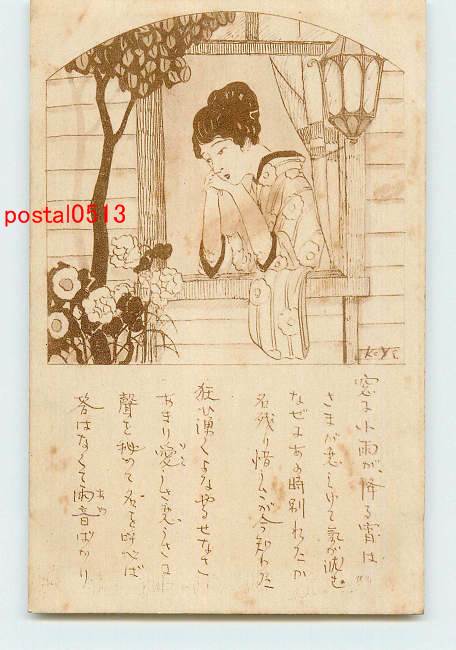 postal0513
KoYo
窓に小雨が、降る宵は
さまが恋しゆて気が沈む
なぜにあの時別れたか
名残り惜しが今知れた
狂ひ湧くよなやるせなさ
あまり愛しさ恋しさに
聲を秘めて名を呼べば
答はなくて雨音ばかり
あめ